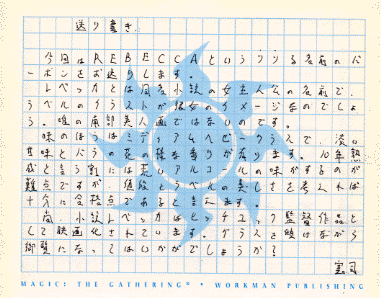 送り書き
今回はREBECCAという 名前のバ
ーボンをお送りします。
レベッカとは風と小説の女主人公の名前で、
ラベルのイラストが彼女のイメージなのでしょ
う。唯の南部美人画ではないのです。
味のほうはミディアムヘビークラスで、淡い
甘味とバラの花の様な香りが有ります。10年熟
成と言う割には荒いアルコールの味がするのが
難点ですが、値段とラベルの美しさを考えれば
十分に合格点であると言えます。
尚、小説レベッカはヒッチコック監督作品と
して映画化されています。グラスを傾けながら
御覧になってはいかがでしょうか?
MAGIC: THE GATHERING® • WORKMAN PUBLISHING